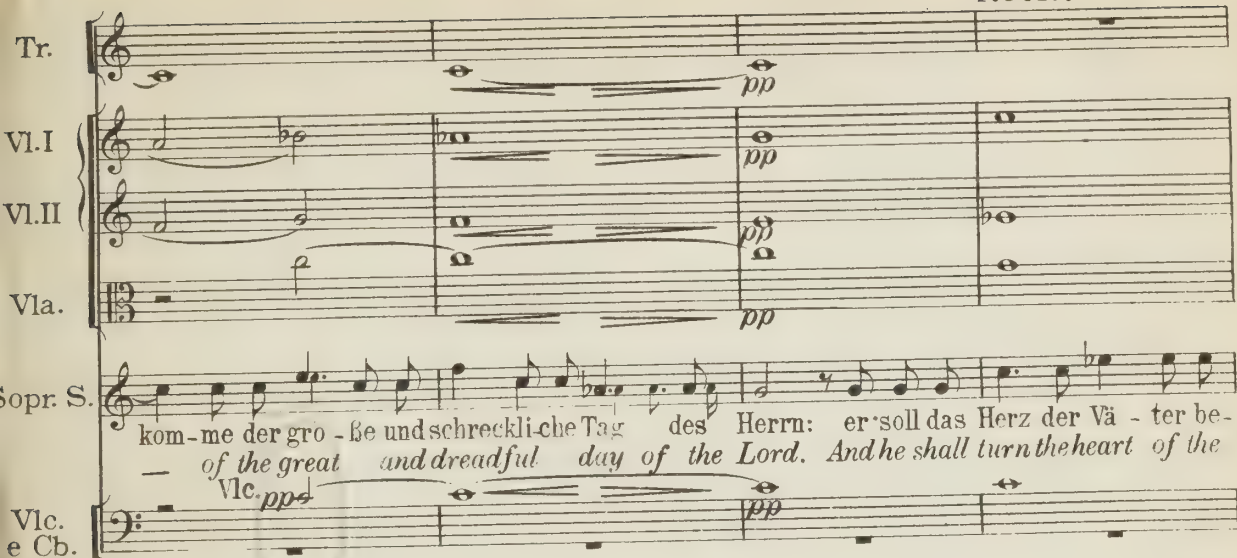 Tr.
pp
Vl.I
pp
Vl.II
pp
Vla.
pp
Sopr. S.
kom-me der gro-ße und schreckli-che Tag des Herrn: er soll das Herz der Vä-ter be-
of the great and dreadful day of the Lord. And he shall turn the heart of the
Vlc. pp
pp
Vlc.
e Cb.